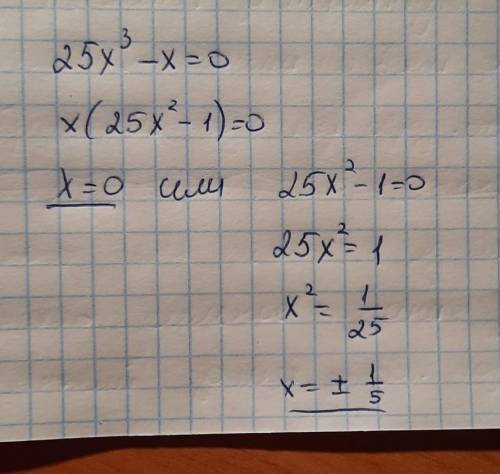 25x³ - x = 0
x(25x² - 1) = 0
x = 0 или 25x² - 1 = 0
25x² = 1
x² = 1/25
x = ± 1/5